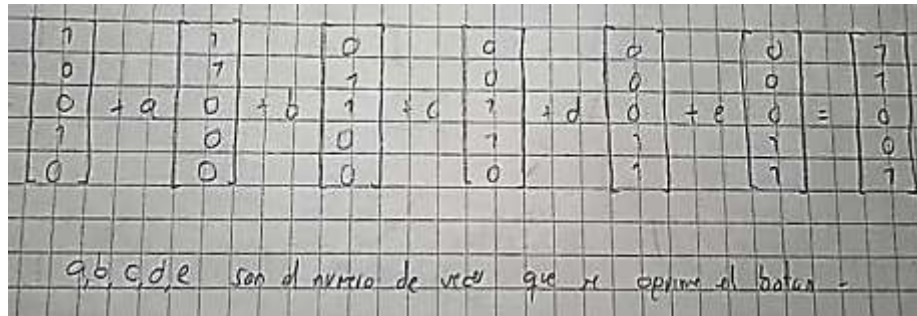 [1 0 0 1 0] + a [1 1 0 0 0] + b [0 1 1 0 0] + c [0 0 1 1 0] + d [0 0 0 1 1] + e [0 0 0 1 1] = [1 1 0 0 1]
a, b, c, d, e son el numero de veces que se oprime el boton -